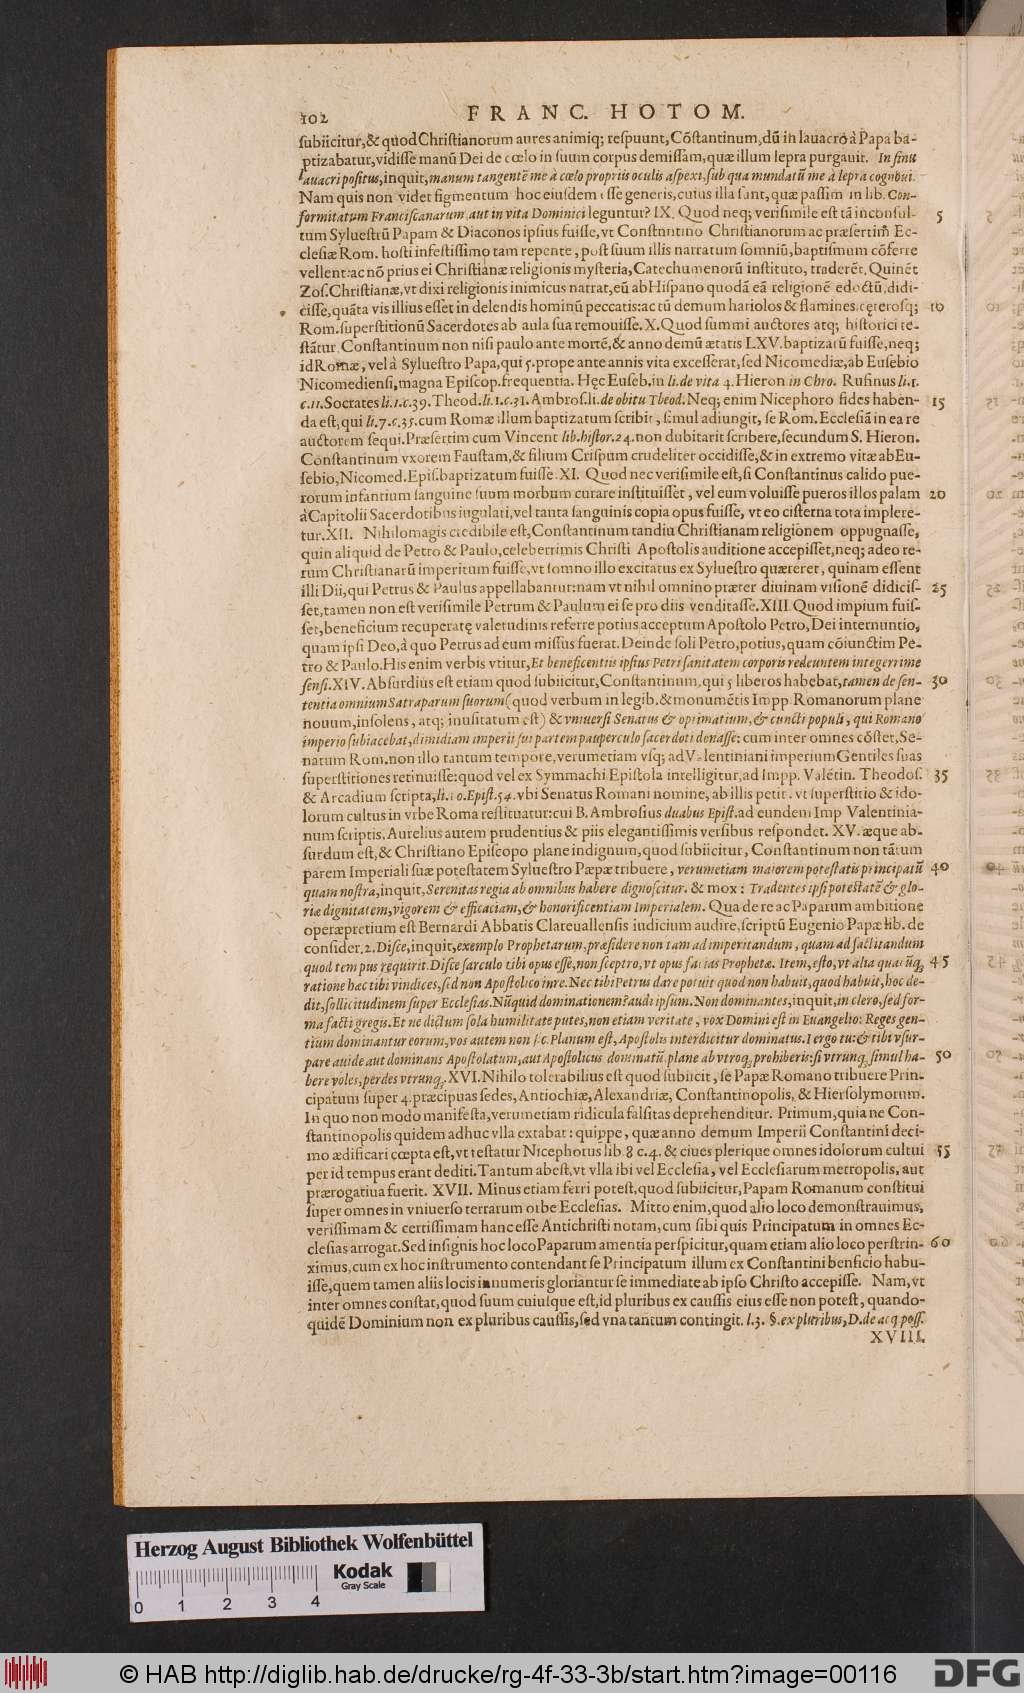 102 FRANC. HOTOM.
subiicitur,& quod Christianorum aures animiq; respuunt, Cōstantinum,dū in lauacro à Papa ba-
ptizabatur,vidisse manū Dei de cœlo in suum corpus demissam,quæ illum lepra purgauit. In sinu
lauacri positus,inquit,manum tangentē me à cœlo propriis oculis aspexi,sub qua mundatū me à lepra cognoui.
Nam quis non videt figmentum hoc eiusdem esse generis,cuius illa sunt,quæ passim in lib. Con-
formitatum Franciscanarum aut in vita Dominici leguntur? IX. Quod neq; verisimile est tā inconsul- 5
tum Syluestrū Papam & Diaconos ipsius fuisse,vt Constantino Christianorum ac præsertim̄ Ec-
clesiæ Rom. hosti infestissimo tam repente, post suum illis narratum somniū,baptismum cōferre
vellent:ac nō prius ei Christianæ religionis mysteria,Catechumenorū instituto, traderēt. Quinēt
Zos.Christianæ,vt dixi religionis inimicus narrat,eū ab Hispano quodā eā religionē edoctū,didi-
cisse,quāta vis illius esset in delendis hominū peccatis:ac tū demum hariolos & flamines,cęterosq; 10
Rom.superstitionū Sacerdotes ab aula sua remouisse. X. Quod summi auctores atq; historici te-
stātur, Constantinum non nisi paulo ante mortē,& anno demū ætatis LXV. baptizatū fuisse,neq;
id Romæ, vel à Syluestro Papa,qui 5. prope ante annis vita excesserat,sed Nicomediæ,ab Eusebio
Nicomediensi,magna Episcop.frequentia. Hęc Euseb.in li.de vita 4. Hieron in Chro. Rufinus li.1.
c.11.Socrates li.1.c.39. Theod.li.1.c.31. Ambros.li.de obitu Theod. Neq; enim Nicephoro fides haben- 15
da est,qui li.7.c.35.cum Romæ illum baptizatum scribit, simul adiungit, se Rom. Ecclesiā in ea re
auctorem sequi.Præsertim cum Vincent lib.histor.24.non dubitarit scribere,secundum S. Hieron.
Constantinum vxorem Faustam,& filium Crispum crudeliter occidisse,& in extremo vitæ ab Eu-
sebio,Nicomed.Epis.baptizatum fuisse. XI. Quod nec verisimile est,si Constantinus calido pue-
rorum infantium sanguine suum morbum curare instituisset, vel eum voluisse pueros illos palam 20
à Capitolii Sacerdotibus iugulari,vel tanta sanguinis copia opus fuisse, vt eo cisterna tota implere-
tur.XII. Nihilomagis credibile est,Constantinum tandiu Christianam religionem oppugnasse,
quin aliquid de Petro & Paulo,celeberrimis Christi Apostolis auditione accepisset,neq; adeo re-
rum Christianarū imperitum fuisse,vt somno illo excitatus ex Syluestro quæreret, quinam essent
illi Dii,qui Petrus & Paulus appellabantur:nam vt nihil omnino præter diuinam visionē didicis- 25
set,tamen non est verisimile Petrum & Paulum ei se pro diis venditasse.XIII. Quod impium fuis-
set,beneficium recuperatę valetudinis referre potius acceptum Apostolo Petro,Dei internuntio,
quam ipsi Deo,à quo Petrus ad eum missus fuerat. Deinde soli Petro,potius,quam cōiunctim Pe-
tro & Paulo.His enim verbis vtitur,Et beneficentiis ipsius Petri sanitatem corporis redeuntem integerrime
sensi.XIV.Absurdius est etiam quod subiicitur,Constantinum,qui 5 liberos habebat,tamen de sen- 30
tentia omnium Satraparum suorum(quod verbum in legib.& monumētis Impp Romanorum plane
nouum,insolens, atq; inusitatum est) & vniuersi Senatus & optimatium,& cuncti populi, qui Romano
imperio subiacebat,dimidiam imperii sui partem pauperculo sacerdoti donasse: cum inter omnes cōstet,Se-
natum Rom.non illo tantum tempore,verumetiam vsq; ad Valentiniani imperium Gentiles suas
superstitiones retinuisse:quod vel ex Symmachi Epistola intelligitur,ad Impp. Valētin. Theodos. 35
& Arcadium scripta,li.10.Epist.54.vbi Senatus Romani nomine, ab illis petit. vt superstitio & ido-
lorum cultus in vrbe Roma restituatur:cui B. Ambrosius duabus Epist.ad eundem Imp Valentinia-
num scriptis. Aurelius autem prudentius & piis elegantissimis versibus respondet. XV. æque ab-
surdum est,& Christiano Episcopo plane indignum,quod subiicitur, Constantinum non tātum
parem Imperiali suæ potestatem Syluestro Papæ tribuere, verumetiam maiorem potestatis principatū 40
quam nostra,inquit,Serenitas regia ab omnibus habere dignoscitur. & mox: Tradentes ipsi potestatē & glo-
riæ dignitatem,vigorem & efficaciam,& honorificentiam Imperialem. Qua de re ac Paparum ambitione
operæpretium est Bernardi Abbatis Clareuallensis iudicium audire,scriptū Eugenio Papæ lib. de
consider.2.Disce,inquit,exemplo Prophetarum,præsidere non tam ad imperitandum, quam ad factitandum
quod tempus requirit.Disce sarculo tibi opus esse,non sceptro,vt opus facias Prophetæ. Item,esto,vt alia quacūq 45
ratione hæc tibi vindices,sed non Apostolico iure. Nec tibi Petrus dare potuit quod non habuit,quod habuit,hoc de-
dit,sollicitudinem super Ecclesias.Nūquid dominationem?audi ipsum.Non dominantes,inquit,in clero,sed for-
ma facti gregis.Et ne dictum sola humilitate putes,non etiam veritate, vox Domini est in Euangelio: Reges gen-
tium dominantur eorum,vos autem non sic.Planum est,Apostolis interdicitur dominatus.I ergo tu:& tibi vsur-
pare aude aut dominans Apostolatum,aut Apostolicus dominatū.plane ab vtroq; prohiberis:si vtrunq; simul ha- 50
bere voles,perdes vtrunq;.XVI.Nihilo tolerabilius est quod subiicit, se Papæ Romano tribuere Prin-
cipatum super 4.præcipuas sedes, Antiochiæ,Alexandriæ, Constantinopolis, & Hiersolymorum.
In quo non modo manifesta,verumetiam ridicula falsitas deprehenditur. Primum,quia ne Con-
stantinopolis quidem adhuc vlla extabat: quippe, quæ anno demum Imperii Constantini deci-
mo ædificari cœpta est,vt testatur Nicephorus lib.8 c.4.& ciues plerique omnes idolorum cultui 55
per id tempus erant dediti.Tantum abest,vt vlla ibi vel Ecclesia, vel Ecclesiarum metropolis, aut
prærogatiua fuerit. XVII. Minus etiam ferri potest,quod subiicitur,Papam Romanum constitui
super omnes in vniuerso terrarum orbe Ecclesias. Mitto enim,quod alio loco demonstrauimus,
verissimam & certissimam hanc esse Antichristi notam,cum sibi quis Principatum in omnes Ec-
clesias arrogat.Sed insignis hoc loco Paparum amentia perspicitur,quam etiam alio loco perstrin- 60
ximus,cum ex hoc instrumento contendant se Principatum illum ex Constantini benficio habu-
isse,quem tamen aliis locis innumeris gloriantur se immediate ab ipso Christo accepisse. Nam,vt
inter omnes constat,quod suum cuiusque est,id pluribus ex caussis eius esse non potest, quando-
quidē Dominium non ex pluribus caussis,sed vna tantum contingit. l.3. §.ex pluribus,D.de acq poss.
XVIII.
Herzog August Bibliothek Wolfenbüttel
Kodak
Gray Scale
0 1 2 3 4
© HAB http://diglib.hab.de/drucke/rg-4f-33-3b/start.htm?image=00116
DFG